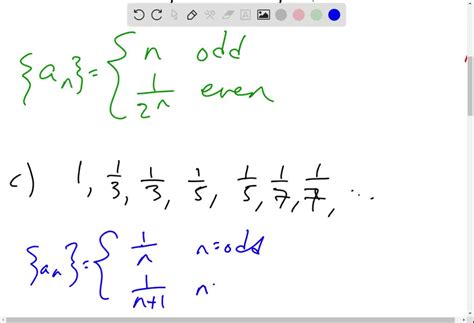 {aₙ} = { n odd
1/2ⁿ even
c) 1, 1/3, 1/3, 1/5, 1/5, 1/7, 1/7, ...
{aₙ} = { 1/n n=odd
1/n+1 n